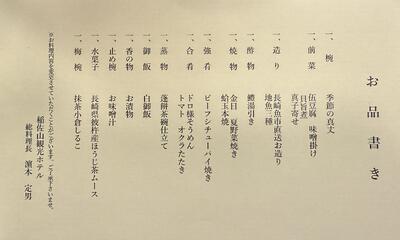 お品書き
一、椀　季節の真丈
一、前菜　伍豆腐　味噌掛け
貝旨煮
真子寄せ
一、造り　長崎魚市直送お造り
地魚三種
一、酢物　鱧湯引き
一、焼物　金目　夏野菜焼き
蛤玉本焼
一、強肴　ビーフシチューパイ焼き
一、合肴　ドロ様そうめん
トマト　オクラたたき
一、蒸物　蓬餅茶碗仕立て
一、御飯　白御飯
一、香の物　お漬物
一、止め椀　お味噌汁
一、水菓子　長崎県彼杵産ほうじ茶ムース
一、梅椀　抹茶小倉しるこ
※お料理内容を変更させていただくことがございます。ご了承下さいませ。
稲佐山観光ホテル
総料理長　濵本　定男